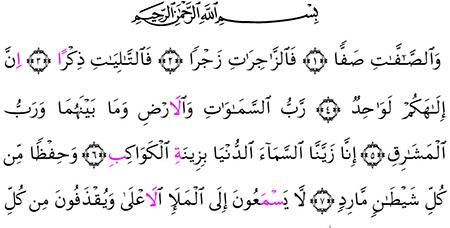 بِسْمِ ٱللَّهِ ٱلرَّحْمَٰنِ ٱلرَّحِيمِ
وَٱلصَّٰٓفَّٰتِ صَفًّا ﴿١﴾ فَٱلزَّٰجِرَٰتِ زَجْرًا ﴿٢﴾ فَٱلتَّٰلِيَٰتِ ذِكْرًا ﴿٣﴾ اِنَّ
إِلَٰهَكُمْ لَوَاحِدٌ ﴿٤﴾ رَّبُّ ٱلسَّمَٰوَٰتِ وَٱلَارْضِ وَمَا بَيْنَهُمَا وَرَبُّ
ٱلْمَشَٰرِقِ ﴿٥﴾ إِنَّا زَيَّنَّا ٱلسَّمَآءَ ٱلدُّنْيَا بِزِينَةِ ٱلْكَوَاكِبِ ﴿٦﴾ وَحِفْظًا مِّن
كُلِّ شَيْطَٰنٍ مَّارِدٍ ﴿٧﴾ لَّا يَسْمَعُونَ إِلَى ٱلْمَلَإِ ٱلَاعْلَىٰ وَيُقْذَفُونَ مِن كُلِّ